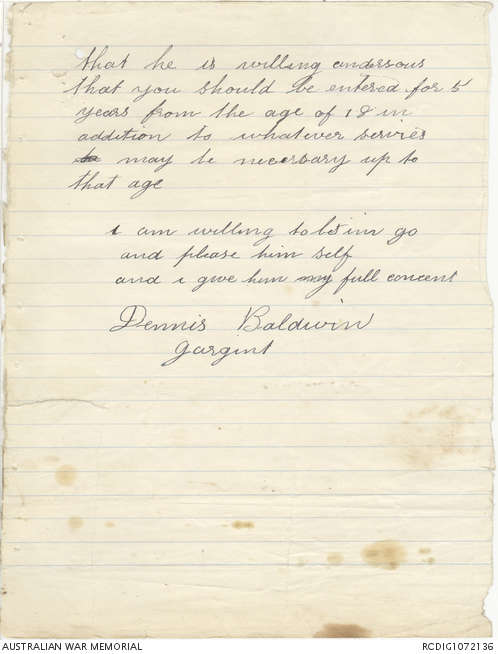 that he is willing andersous
that you should be entered for 5
years from the age of 18 in
addition to whatever servies
may be necessary up to
that age
i am willing to let im go
and please him self
and i give him my full concent
Dennis Baldwin
gargint
AUSTRALIAN WAR MEMORIAL
RCDIG1072136